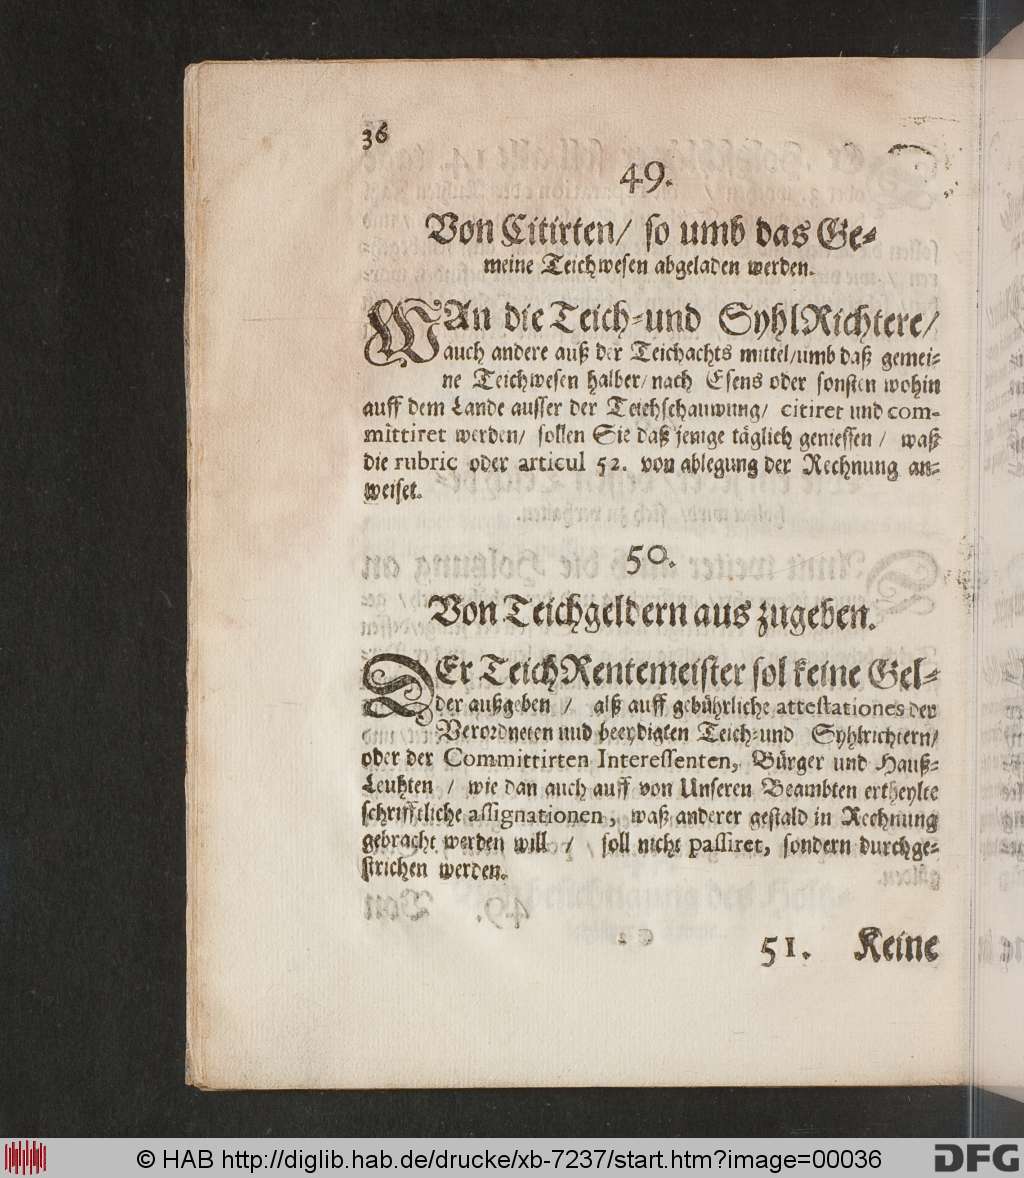 36
49.
Von Citirten/ so umb das Ge-
meine Teichwesen abgeladen werden.
WAn die Teich-und SyhlRichtere/
auch andere auß der Teichachts mittel/umb daß gemei-
ne Teichwesen halber/nach Esens oder sonsten wohin
auff dem Lande ausser der Teichschauwung/ citiret und com-
mittiret werden/ sollen Sie daß jenige täglich geniessen / waß
die rubric oder articul 52. von ablegung der Rechnung an-
weiset.
50.
Von Teichgeldern aus zugeben.
DEr TeichRentemeister sol keine Gel-
der außgeben / alß auff gebührliche attestationes der
Verordneten und beeydigten Teich-und Syhlrichtern/
oder der Committirten Interessenten, Bürger und Hauß-
Leuhten / wie dan auch auff von Unseren Beambten ertheylte
schrifftliche assignationen, waß anderer gestald in Rechnung
gebracht werden will / soll nicht passiret, sondern durchge-
strichen werden.
51. Keine
© HAB http://diglib.hab.de/drucke/xb-7237/start.htm?image=00036
DFG